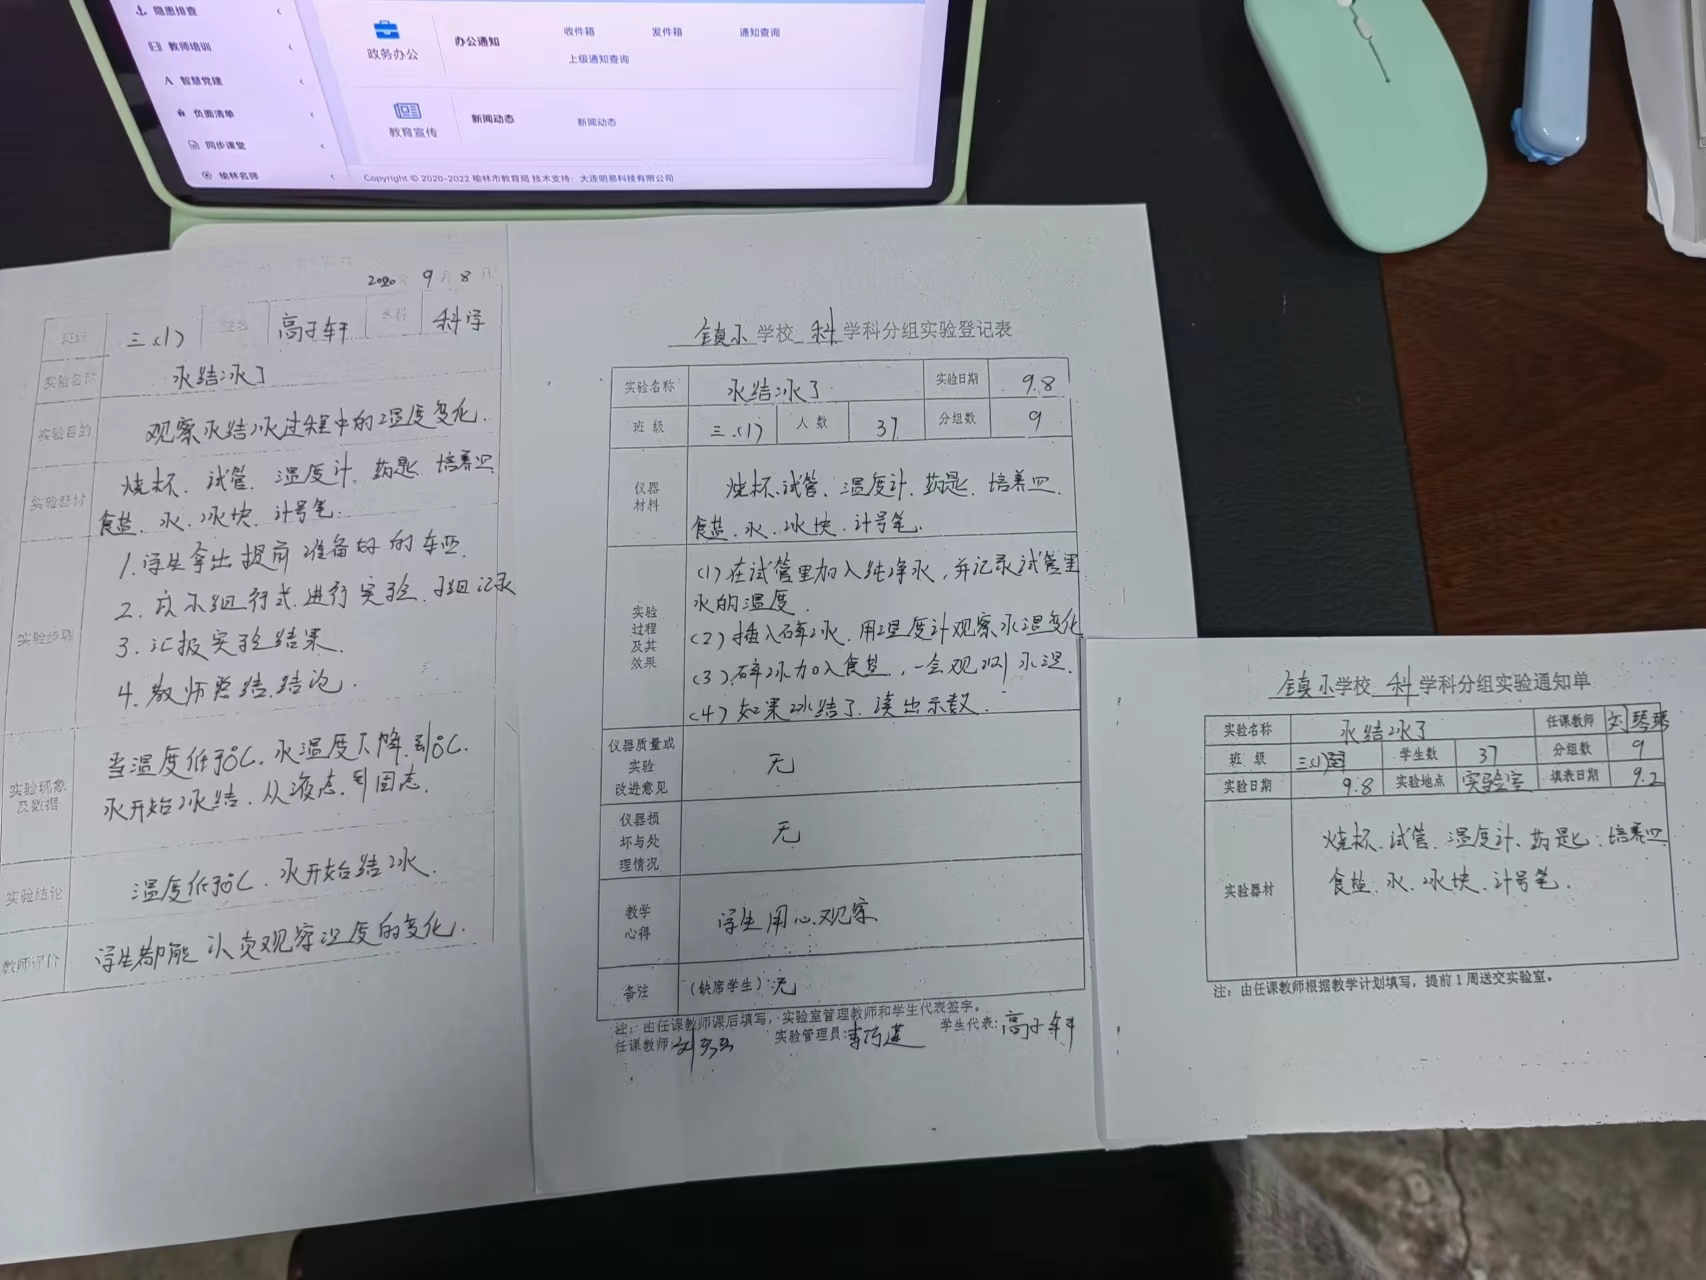 隐患排查
教师培训
智慧党建
负面清单
同步课堂
榆林名师
政务办公
办公通知
收件箱
发件箱
通知查询
上级通知查询
教育宣传
新闻动态
新闻动态
Copyright © 2020-2022 榆林市教育局 技术支持：大连明易科技有限公司
9月8日
三(1) 姓名 高子轩 科学
实验名称 水结冰了
实验目的 观察水结冰过程中的温度变化.
实验器材 烧杯、试管、温度计、药匙、培养皿
食盐、水、冰块、计号笔.
实验步骤 1.学生拿出提前准备好的
2.以小组行式进行实验.
3.汇报实验结果.
4.教师总结.结论.
实验现象及数据 当温度低于0℃.水温度下降.到0℃.
水开始冰结.从液态到固态.
实验结论 温度低于0℃.水开始结冰.
教师评价 学生都能认真观察温度的变化.
镇小学校 科学科分组实验登记表
实验名称 水结冰了 实验日期 9.8
班级 三(1) 人数 37 分组数 9
仪器材料 烧杯、试管、温度计、药匙、培养皿.
食盐、水、冰块、计号笔.
实验过程及其效果 (1)在试管里加入纯净水,并记录试管里
水的温度.
(2)插入碎冰.用温度计观察水温变化
(3)碎冰加入食盐,一会观测水温.
(4)如果冰结了.读出示数.
仪器质量或实验改进意见 无
仪器损坏与处理情况 无
教学心得 学生用心观察
备注 (缺席学生):无
注：由任课教师课后填写，实验室管理教师和学生代表签字。
任课教师: 实验管理员: 学生代表:高子轩
镇小学校 科学科分组实验通知单
实验名称 水结冰了 任课教师 刘琴琴
班级 三(1) 学生数 37 分组数 9
实验日期 9.8 实验地点 实验室 填表日期 9.2
实验器材 烧杯、试管、温度计、药匙、培养皿
食盐、水、冰块、计号笔.
注：由任课教师根据教学计划填写，提前1周送交实验室。